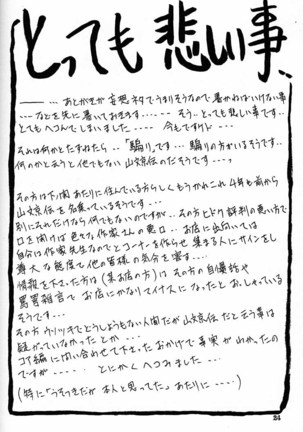 とっても悲しい事、
――― … あとがきが妄想ネタでうまりそうなので書かねばいけない事
… などを先に書いておきます…--- そう…とっても悲しい事です…
とてもへコんでしまいました---- 今もですけド---
それは何かとたずねたら… 「騙り」です… 騙りの方がいるそうです…
何のかと云うと他でもない 山文京伝のだそうです---。
その方は下関あたりに住んでいる方らしくもうかれこれ4年も前から
山文京伝を名乗っているそうです---
別にそれだけなら何でもないのですが…その方とかく評判の悪い方で
口を開けば色々な作家さんの悪口‥ お店に出向いては
自分は作家先生なのでとコーナーを作らせ 集まる人にサインをし
尊大な態度で他の皆様の気分を害す…
情報を下さった方は(某お店の方)は その方の自慢話や
罵詈雑言で お店にかなりマイナスになったと おしゃっている
そうです…
その方 ウソツキでどうしようもない人間だが山文京伝だと云う事は
疑がっていなかったとか…
コア編に問い合わせて下さったおかげで事実が分かったの
ですが----- とにかくへコみました---
(特に「うそつきだが 本人と思ってた」あたりに----)
24